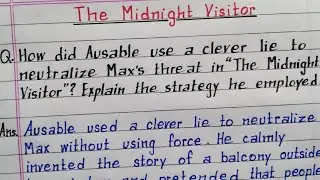 The Midnight Visitor
Q. How did Ausable use a clever lie to
neutralize Max's threat in "The Midnight
Visitor"? Explain the strategy he employed
Ans. Ausable used a clever lie to neutralize
Max without using force. He calmly
invented the story of a balcony outside
and pretended that people